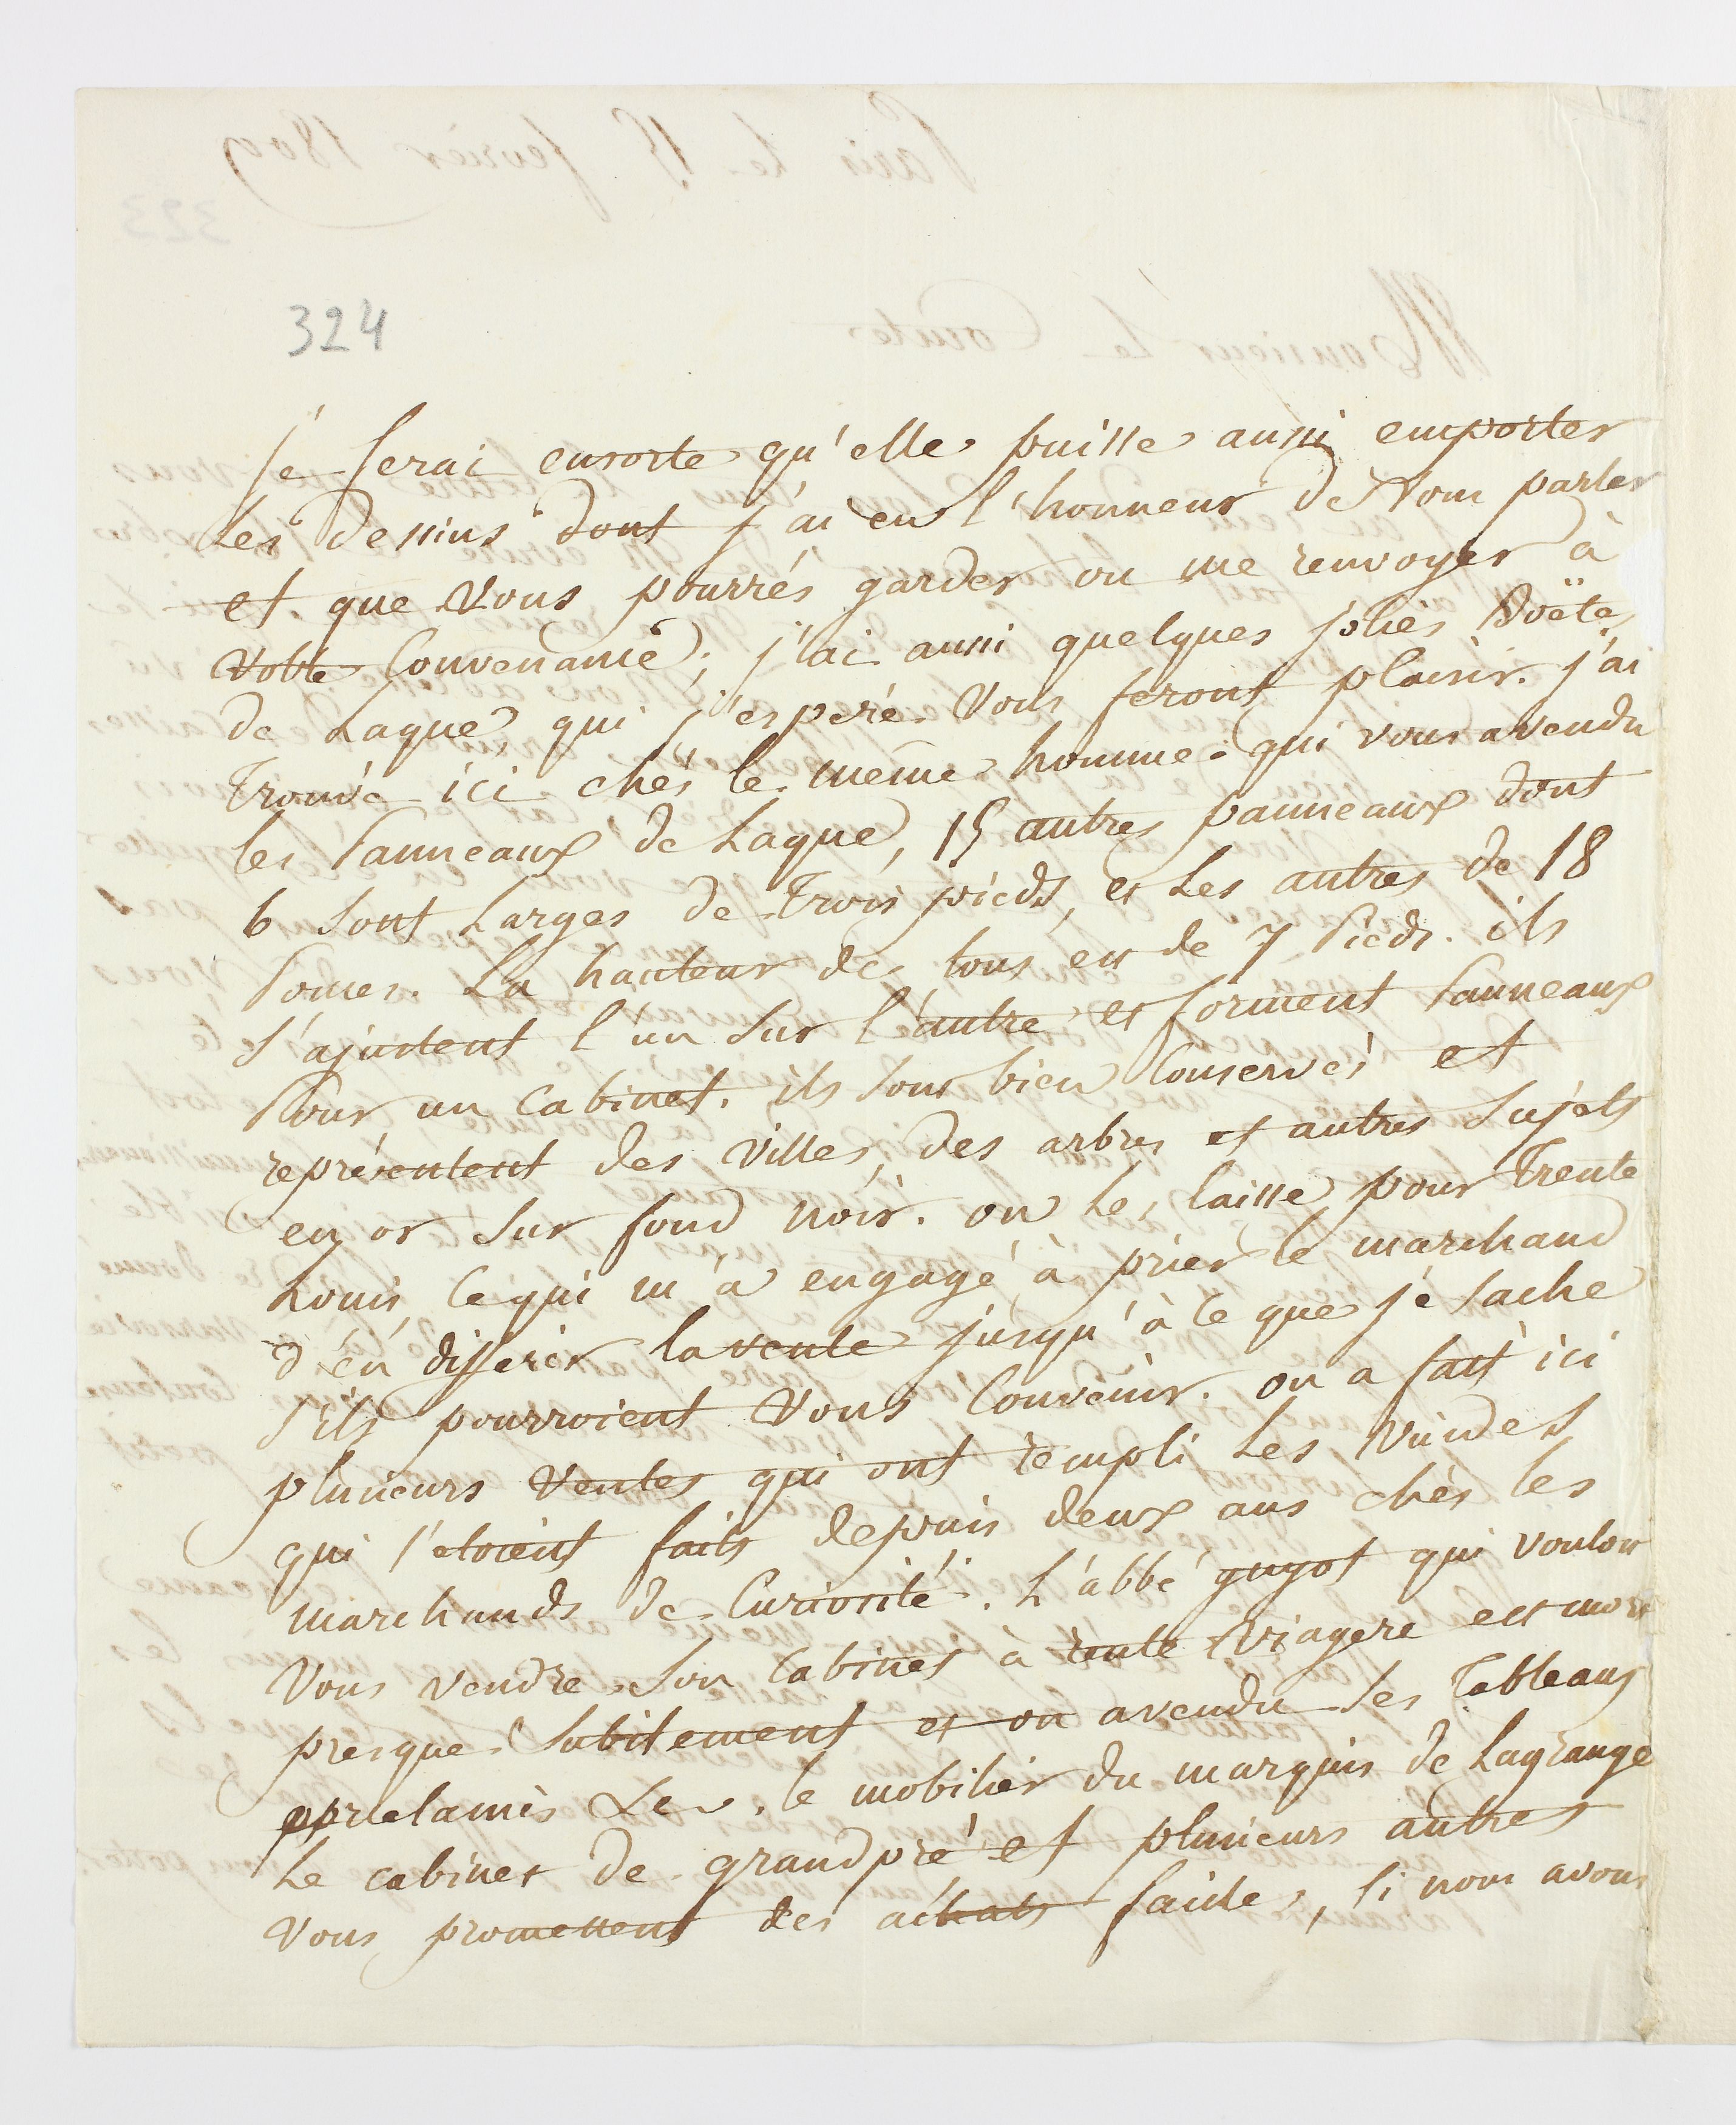 324
je ferai ensorte qu'elle puisse aussi emporter
les dessins dont j'ai eu l'honneur de Vous parler
et que Vous pourrés garder ou me renvoyer à
Votre Convenance; j'ai aussi quelques jolies Boëtes
de Laque qui j'espere Vous feront plaisir. j'ai
Trouvé ici chés le même homme qui vous a vendu
les Panneaux de Laque, 15 autres panneaux dont
6 sont Larges de Trois pieds, et Les autres de 18
Pouces. La hauteur de tous est de 7 Pieds. ils
s'ajustent l'un sur l'autre et forment Panneaux
Pour un Cabinet. ils sont bien Conservés et
représentent des Villes, des arbres et autres Sujets
en or sur fond noir. on les laisse pour Trente
Louis, ce qui m'a engagé à prier le marchand
d'en differer la vente jusqu'à ce que je sache
s'ils pourroient Vous Convenir. on a fait ici
plusieurs Ventes qui ont rempli Les Vuides
qui s'etoient faits depuis deux ans chés les
marchands de Curiosité. L'abbé guyot qui vouloit
Vous vendre son Cabinet à rente Viagere est mort
presque Subitement et on a vendu ses Tableaux
le mobilier du marquis de Lagrange
Le cabinet de grandpré et plusieurs autres
Vous promettent des achats faciles, si nous avons